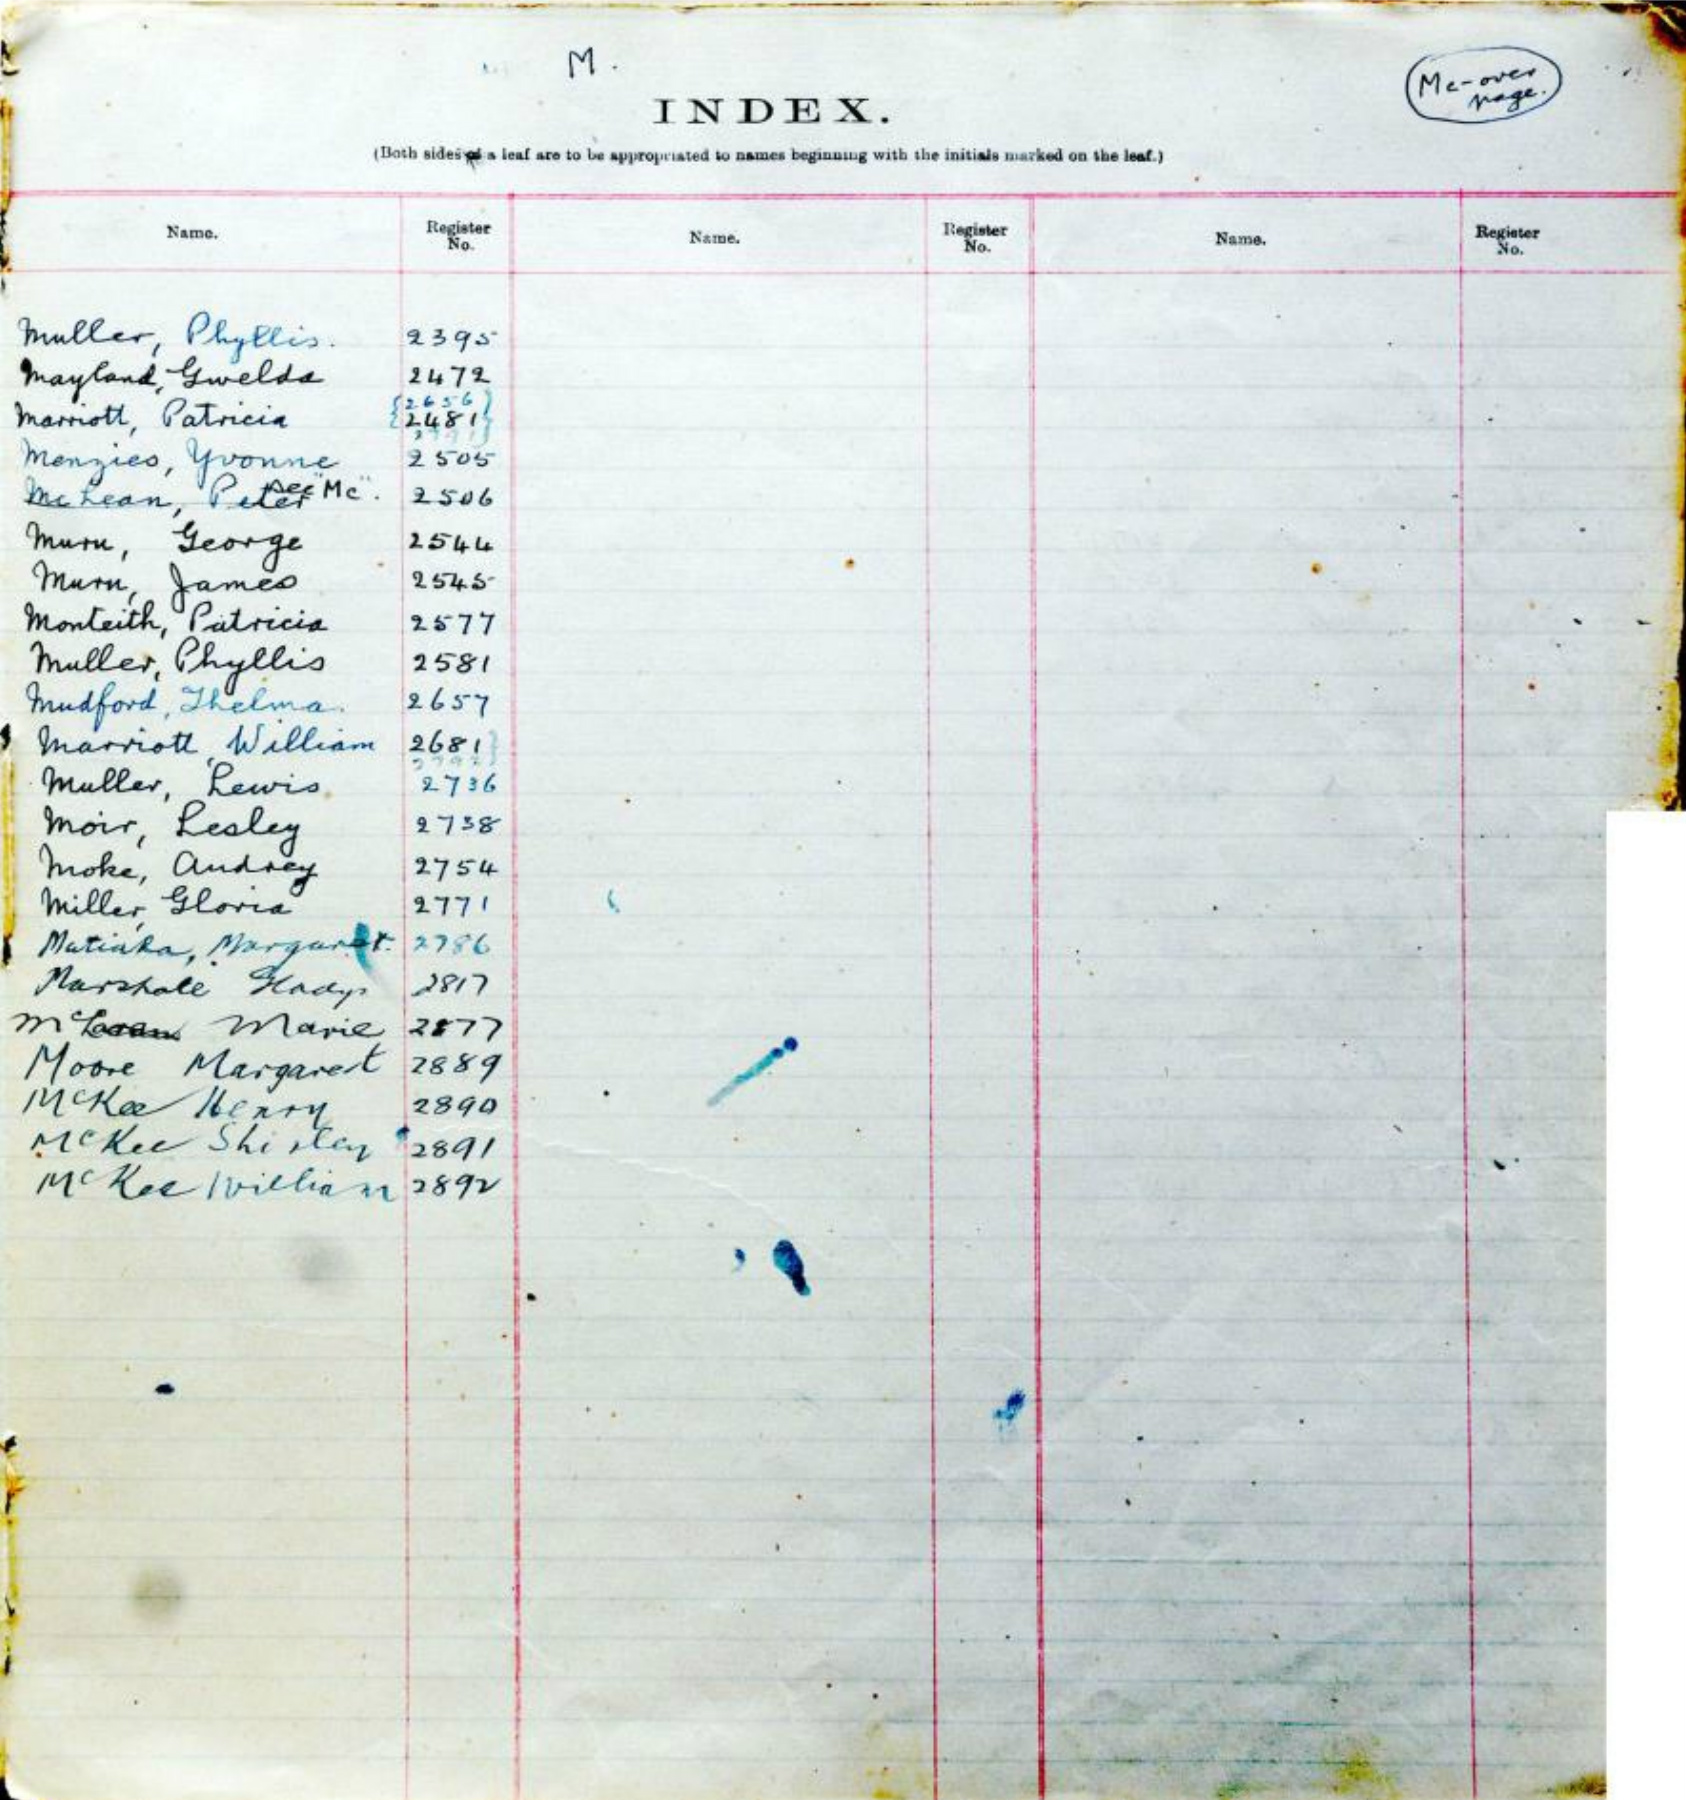 M.
Mc-over
page.
INDEX.
(Both sides of a leaf are to be appropriated to names beginning with the initials marked on the leaf.)
Name. Register No. Name. Register No. Name. Register No.
Muller, Phyllis. 2395
Mayland, Gwelda 2472
{2656}
Marriott, Patricia {2481}
Menzies, Yvonne 2505
McLean, Peter see "Mc". 2506
Muru, George 2544
Muru, James 2545
Monteith, Patricia 2577
Muller, Phyllis 2581
Mudford, Thelma. 2657
Marriott, William 2681}
Muller, Lewis. 2736
Moir, Lesley 2738
Moke, Audrey 2754
Miller, Gloria 2771
Margaret. 2786
Marshall Gladys 2817
Marie 2877
Moore Margaret 2889
McKee Henry 2890
McKee Shirley 2891
McKee William 2892